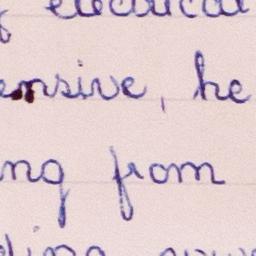 electrical
ensive, he
ng from
ding